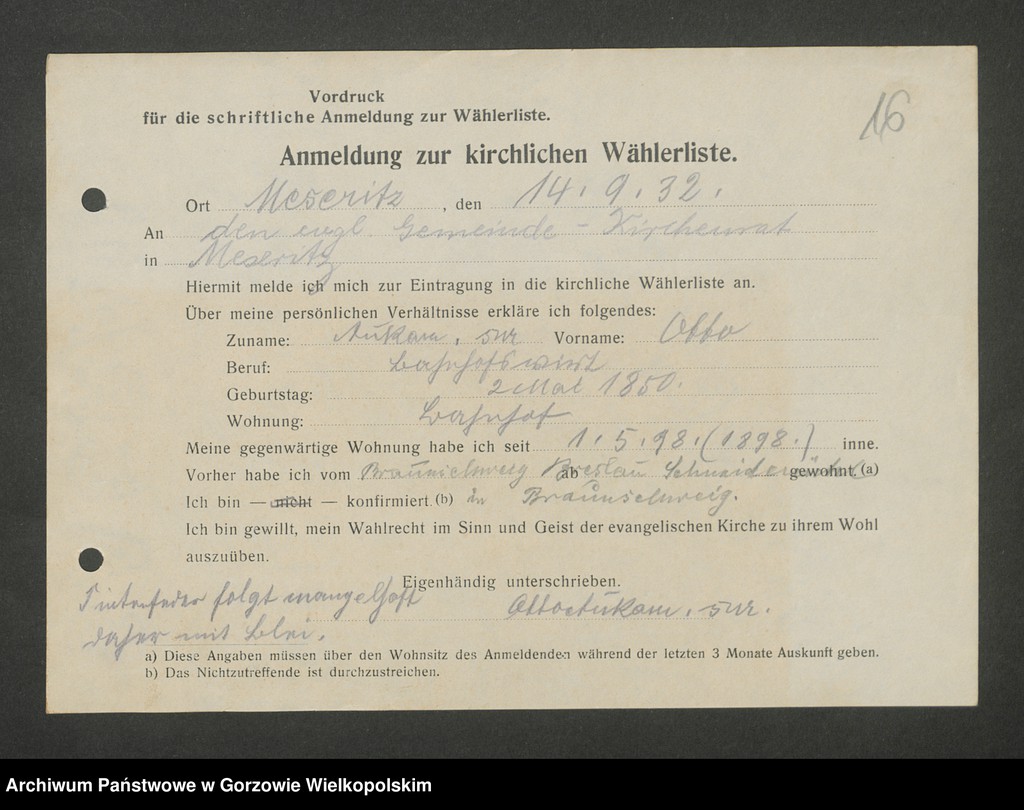 16
Vordruck
für die schriftliche Anmeldung zur Wählerliste.
Anmeldung zur kirchlichen Wählerliste.
Ort Meseritz, den 14.9.32.
An den evgl. Gemeinde-Kirchenrat
in Meseritz
Hiermit melde ich mich zur Eintragung in die kirchliche Wählerliste an.
Über meine persönlichen Verhältnisse erkläre ich folgendes:
Zuname: Vorname: Otto
Beruf: Bahnhofswirt
Geburtstag: 2 Mai 1850.
Wohnung: Bahnhof
Meine gegenwärtige Wohnung habe ich seit 1.5.98. (1898.) inne.
Vorher habe ich vom Braunschweig Breslau ab gewohnt. (a)
Ich bin — nicht — konfirmiert. (b) in Braunschweig.
Ich bin gewillt, mein Wahlrecht im Sinn und Geist der evangelischen Kirche zu ihrem Wohl
auszuüben.
Eigenhändig unterschrieben.
Tintenfeder folgt mangelhaft
daher mit Blei.
Otto
a) Diese Angaben müssen über den Wohnsitz des Anmeldenden während der letzten 3 Monate Auskunft geben.
b) Das Nichtzutreffende ist durchzustreichen.
Archiwum Państwowe w Gorzowie Wielkopolskim